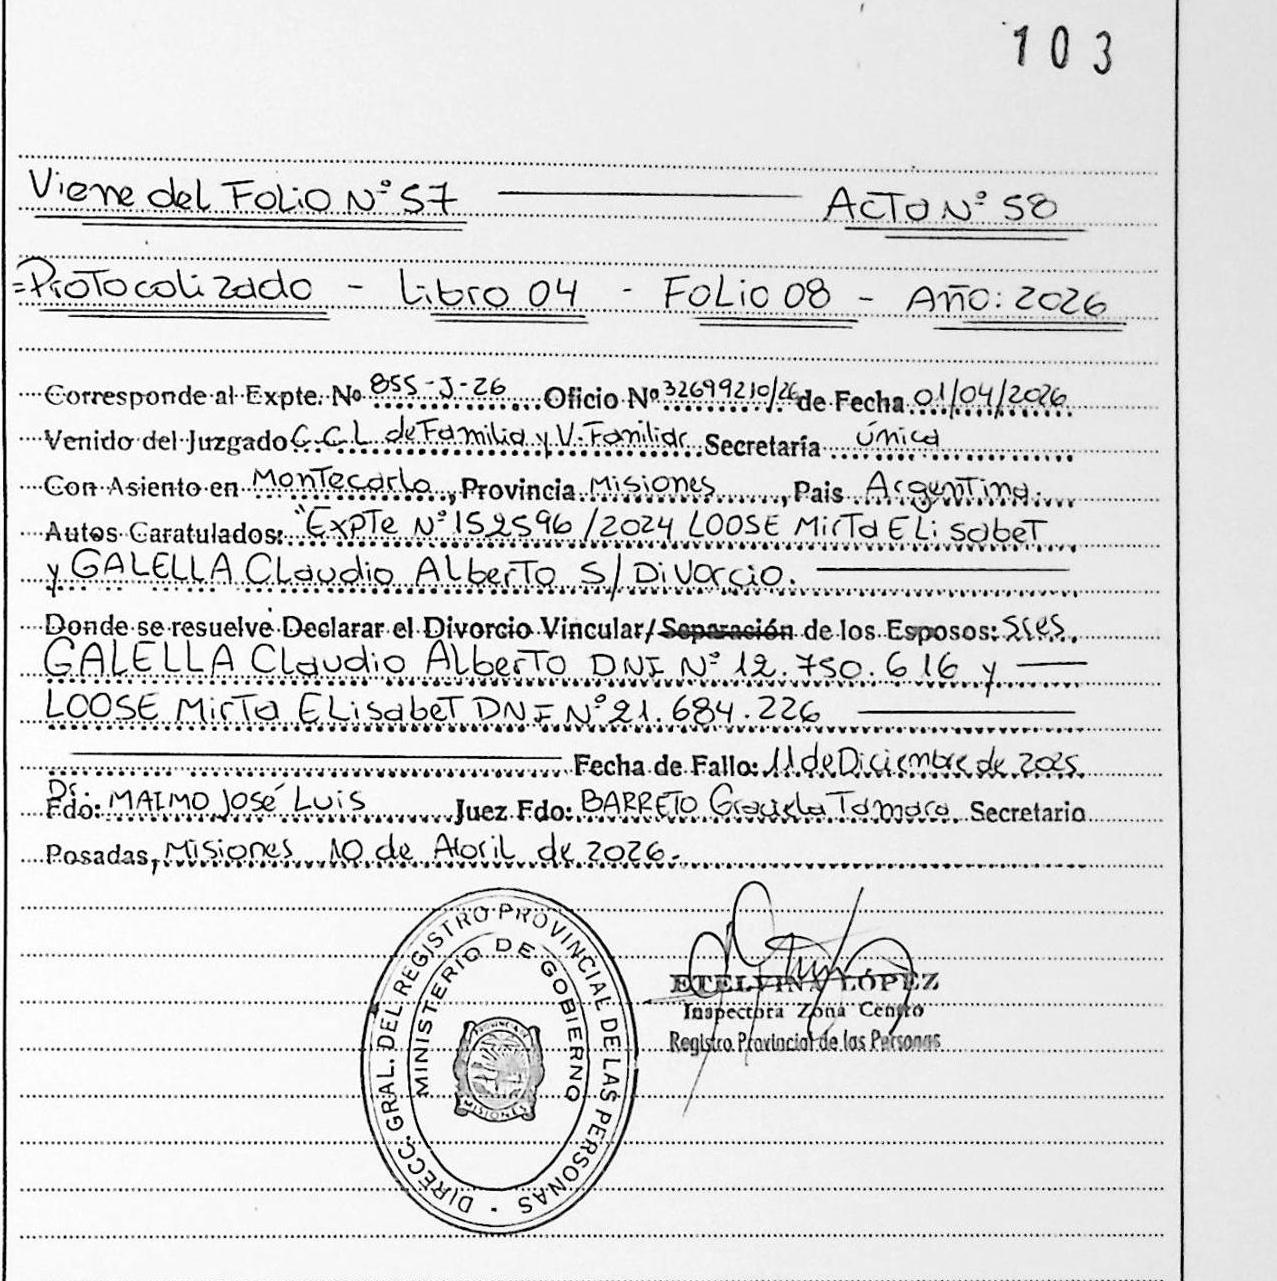 103
Viene del Folio N° 57 ACTA N° 58
=Protocolizado - Libro 04 - Folio 08 - Año: 2026
Corresponde al Expte. Nº 855-J-26 Oficio Nº 32699210/26 de Fecha 01/04/2026
Venido del Juzgado C.C.L. de Familia y V. Familiar Secretaría Única
Con Asiento en Montecarlo, Provincia Misiones, Pais Argentina.
Autos Caratulados: "Expte N° 152596/2024 LOOSE Mirta Elisabet
y GALELLA Claudio Alberto S/ Divorcio.
Donde se resuelve Declarar el Divorcio Vincular/Separación de los Esposos: Sres.
GALELLA Claudio Alberto DNI N° 12.750.616 y
LOOSE Mirta Elisabet DNI N° 21.684.226
Fecha de Fallo: 11 de Diciembre de 2025
Fdo: Dr. MAIMO José Luis Juez Fdo: BARRETO Graciela Tamara. Secretario
Posadas, Misiones 10 de Abril de 2026.-
DIRECC. GRAL. DEL REGISTRO PROVINCIAL DE LAS PERSONAS -
MINISTERIO DE GOBIERNO
PROVINCIA DE
MISIONES
ETELVINA LÓPEZ
Inspectora Zona Centro
Registro Provincial de las Personas